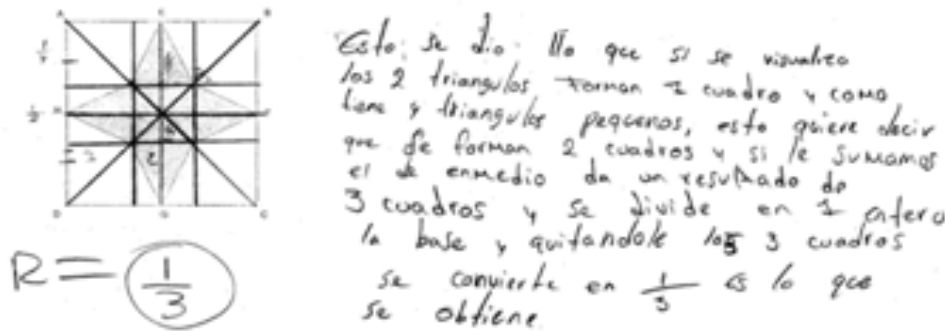 A E B
H F
D G C
1/2
2
Esto se dio llo que si se visualiza
los 2 triangulos forman 1 cuadro y como
tiene 4 triangulos pequeños, esto quiere decir
que se forman 2 cuadros y si le sumamos
el de enmedio da un resultado de
3 cuadros y se divide en 1 entero
la base y quitandole los 3 cuadros
se convierte en 1/3 es lo que
se obtiene
R = 1/3